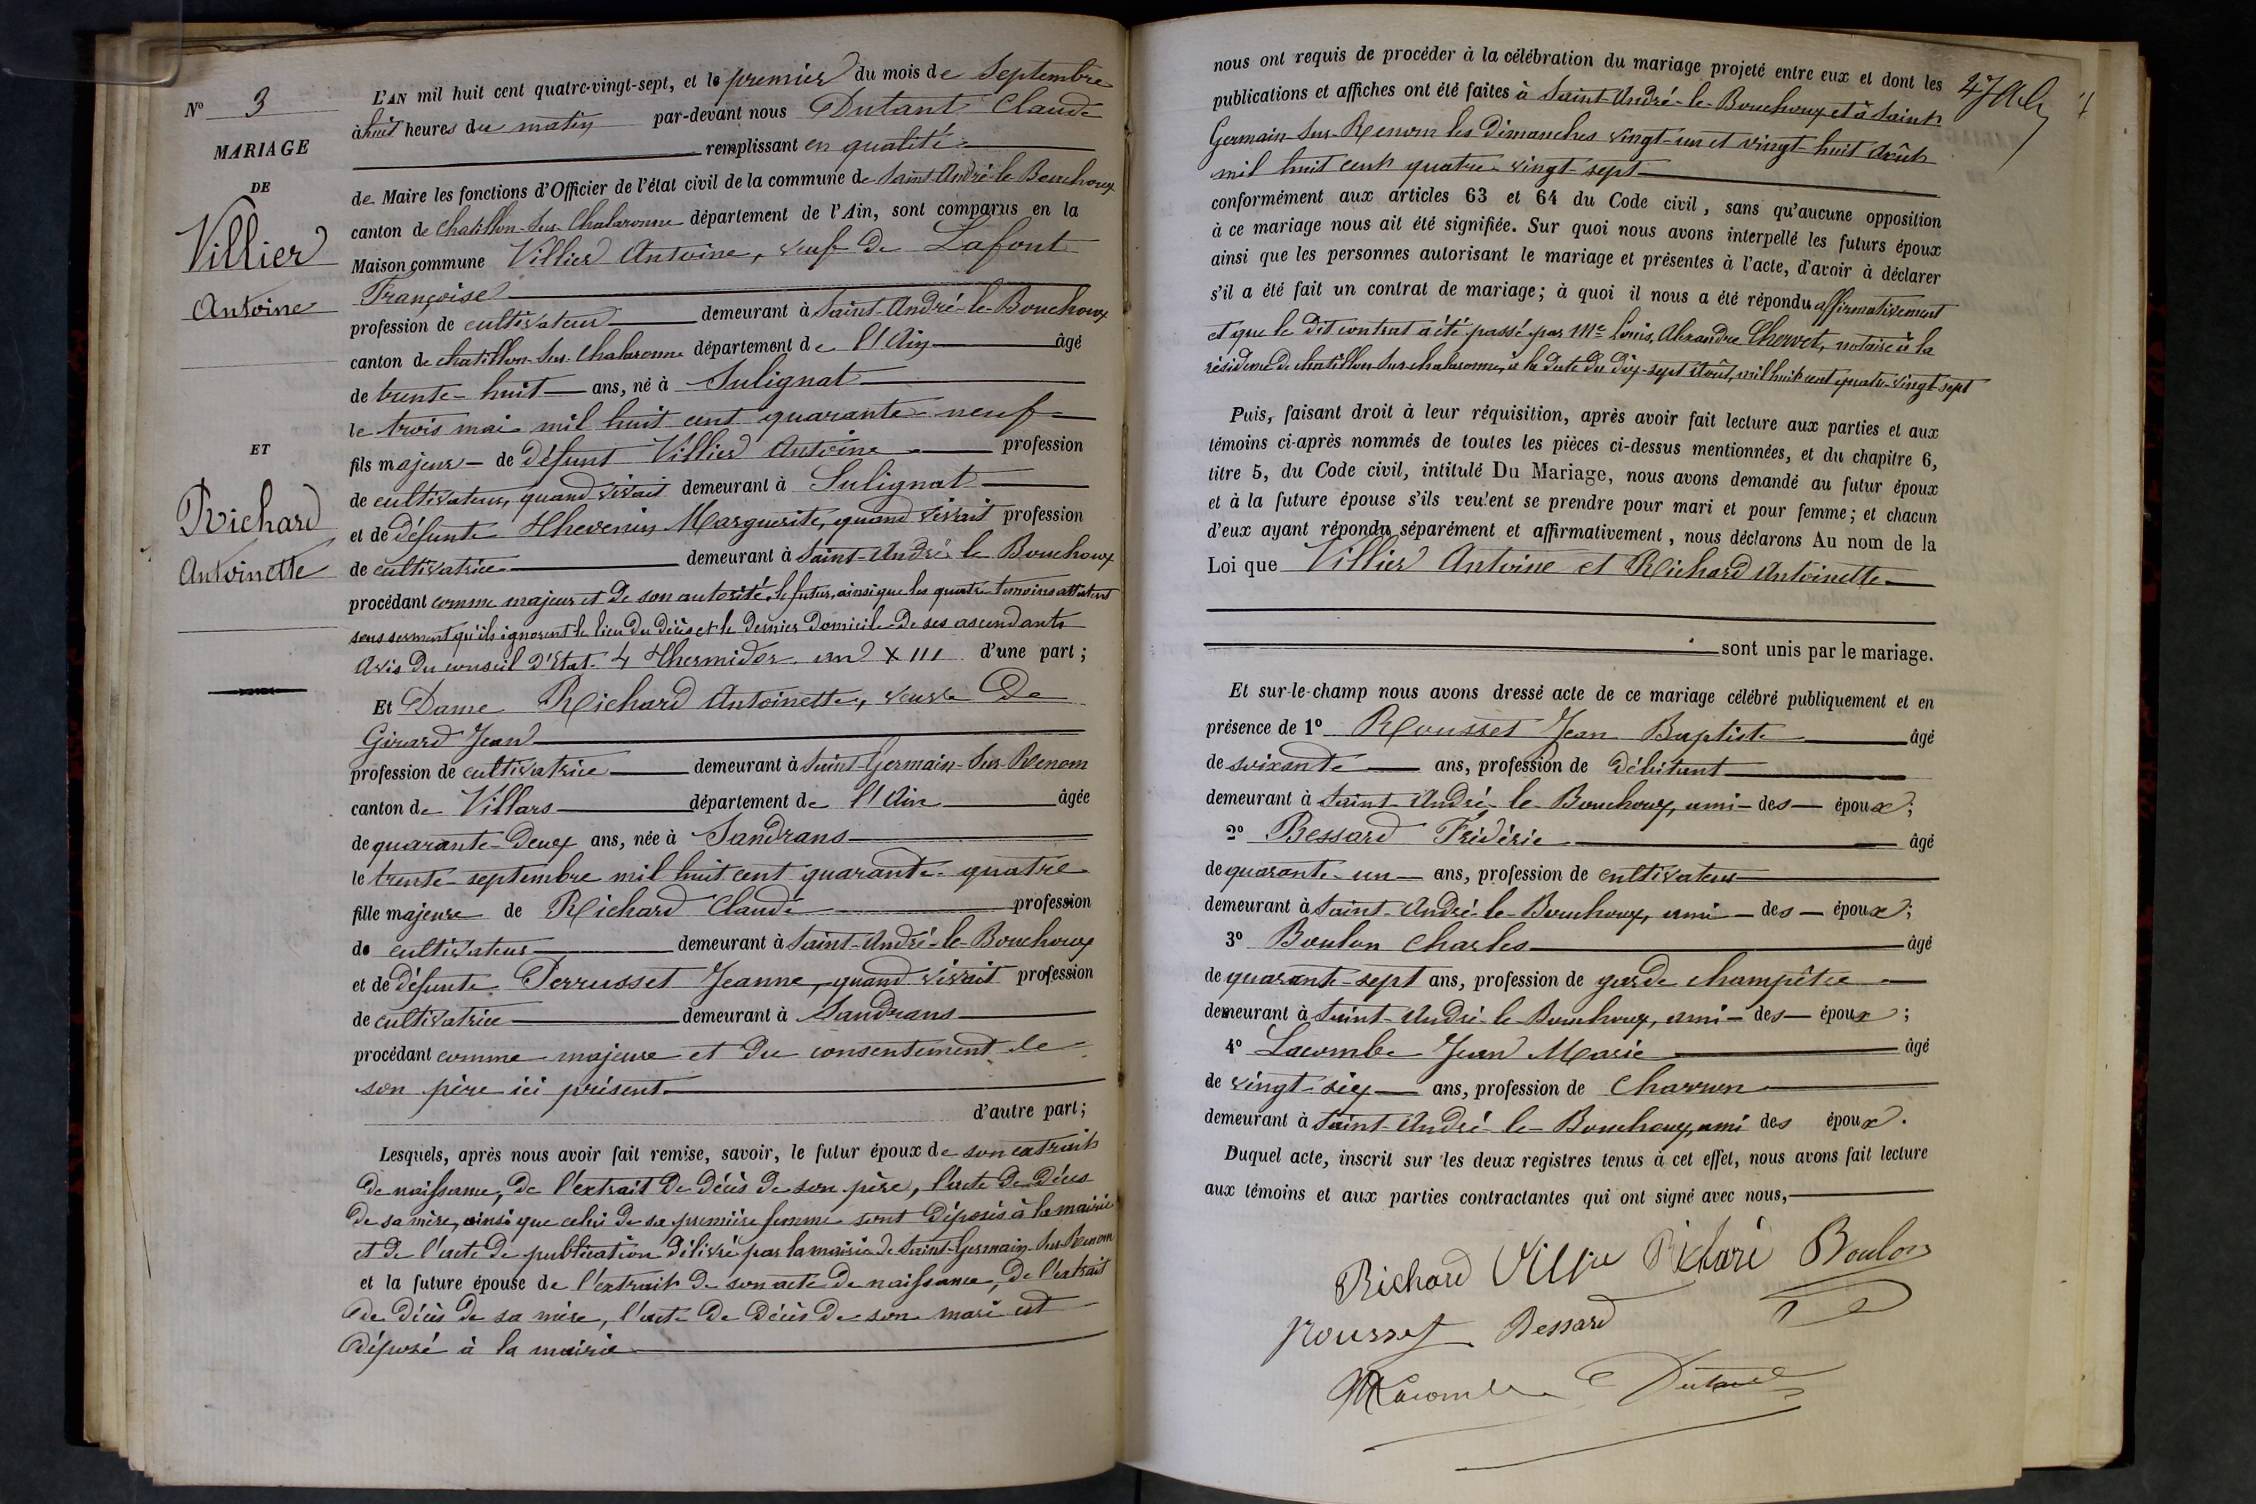 N° 3
MARIAGE
DE
Villier
Antoine
ET
Richard
Antoinette
L'AN mil huit cent quatre-vingt-sept, et le premier du mois de Septembre
à huit heures du matin par-devant nous Dutant Claude
remplissant en qualité
de Maire les fonctions d'Officier de l'état civil de la commune de Saint-André-le-Bouchoux
canton de Chatillon-sur-Chalaronne département de l'Ain, sont comparus en la
Maison commune Villier Antoine, veuf de Lafont
Françoise
profession de cultivateur demeurant à Saint-André-le-Bouchoux
canton de chatillon-sur-Chalaronne département de l'Ain âgé
de trente-huit ans, né à Sulignat
le trois mai mil huit cent quarante-neuf
fils majeur de défunt Villier Antoine profession
de cultivateur, quand vivait demeurant à Sulignat
et de défunte Thevenin Marguerite, quand vivait profession
de cultivatrice demeurant à Saint-André le Bouchoux
procédant comme majeur et de son autorité, le futur, ainsi que les quatre témoins attestent
sous serment qu'ils ignorent le lieu du décès et le dernier domicile de ses ascendants
Avis du conseil d'Etat 4 Thermidor an XIII d'une part;
Et Dame Richard Antoinette, veuve de
Girard Jean
profession de cultivatrice demeurant à Saint-Germain-sur-Renom
canton de Villars département de l'Ain âgée
de quarante-deux ans, née à Sandrans
le trente septembre mil huit cent quarante-quatre
fille majeure de Richard Claude profession
de cultivateur demeurant à Saint-André-le-Bouchoux
et de défunte Perrusset Jeanne, quand vivait profession
de cultivatrice demeurant à Sandrans
procédant comme majeure et du consentement de
son père ici présent
d'autre part;
Lesquels, après nous avoir fait remise, savoir, le futur époux de son extrait
de naissance, de l'extrait de décès de son père, l'acte de décès
de sa mère, ainsi que celui de sa première femme sont déposés à la mairie
et de l'acte de publication délivré par la mairie de Saint-Germain-sur-Renom
et la future épouse de l'extrait de son acte de naissance, de l'extrait
de décès de sa mère, l'acte de décès de son mari est
déposé à la mairie
nous ont requis de procéder à la célébration du mariage projeté entre eux et dont les
publications et affiches ont été faites à Saint-André-le-Bouchoux et à Saint
Germain-sur-Renom les dimanches vingt-un et vingt-huit Août
mil huit cent quatre-vingt-sept
conformément aux articles 63 et 64 du Code civil, sans qu'aucune opposition
à ce mariage nous ait été signifiée. Sur quoi nous avons interpellé les futurs époux
ainsi que les personnes autorisant le mariage et présentes à l'acte, d'avoir à déclarer
s'il a été fait un contrat de mariage; à quoi il nous a été répondu affirmativement
et que le dit contrat a été passé par Me Louis, Alexandre Chervet, notaire à la
résidence de chatillon-sur-chalaronne, à la date du dix-sept Août, mil huit cent quatre-vingt-sept
Puis, faisant droit à leur réquisition, après avoir fait lecture aux parties et aux
témoins ci-après nommés de toutes les pièces ci-dessus mentionnées, et du chapitre 6,
titre 5, du Code civil, intitulé Du Mariage, nous avons demandé au futur époux
et à la future épouse s'ils veulent se prendre pour mari et pour femme; et chacun
d'eux ayant répondu séparément et affirmativement, nous déclarons Au nom de la
Loi que Villier Antoine et Richard Antoinette
sont unis par le mariage.
Et sur-le-champ nous avons dressé acte de ce mariage célébré publiquement et en
présence de 1° Rousset Jean Baptiste âgé
de soixante ans, profession de débitant
demeurant à Saint-André-le-Bouchoux, ami des époux;
2° Bessard Frédéric âgé
de quarante-un ans, profession de cultivateur
demeurant à Saint-André-le-Bouchoux, ami des époux;
3° Boulon Charles âgé
de quarante-sept ans, profession de garde champêtre
demeurant à Saint-André-le-Bouchoux, ami des époux;
4° Lacombe Jean Marie âgé
de vingt-six ans, profession de Charron
demeurant à Saint-André-le-Bouchoux, ami des époux.
Duquel acte, inscrit sur les deux registres tenus à cet effet, nous avons fait lecture
aux témoins et aux parties contractantes qui ont signé avec nous,
Richard Boulon
Rousset Bessard
Lacombe Dutant